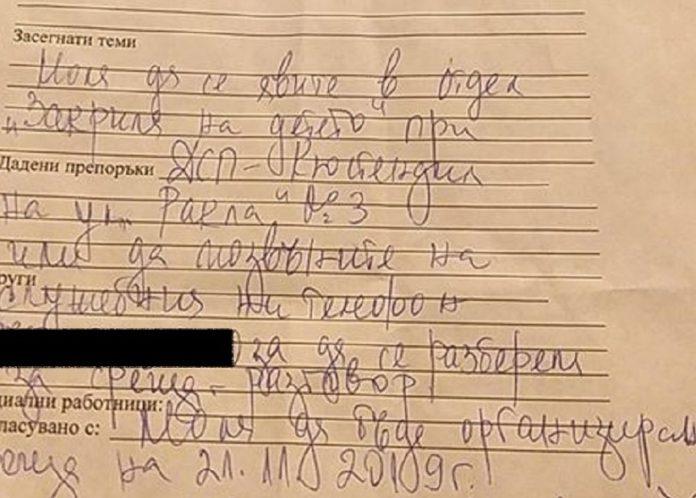 Засегнати теми
Моля да се явите в отдел
"Закрила на детето" при
Дадени препоръки ДСП - Кюстендил
на ул. "Ракла" № 3
или да позвъните на
руги
служебния ни телефон
за да се разберем
за среща - разговор
циални работници:
ласувано с: Моля да бъде организирана
среща на 21.11.2019г.